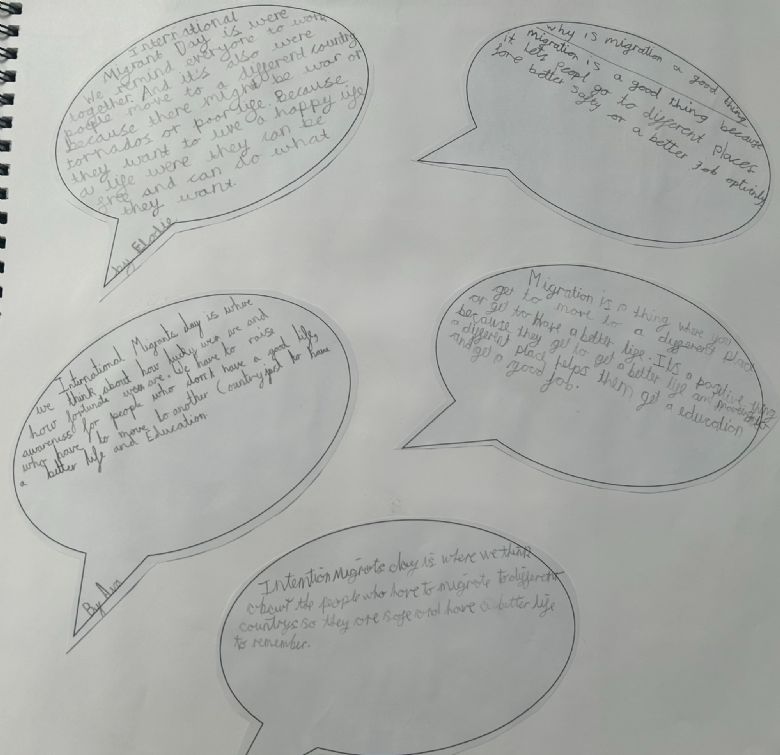 International
Migrant Day is were
We remind everyone to work
together. And it's also were
people move to a different country
because there might be war or
tornados or poor life. Because
they want to live a happy life
a life were they can be
free and can do what
they want.
by Elodie
why is migration a good thing
migration is a good thing because
it lets peopl go to different places
fore better safty or a better Job
International Migrants day is where
we think about how lucky we are and
how fortunate we are. We have to raise
awareness for people who don't have a good life,
who have to move to another Country just to have
a better life and Education
By Ava
Migration is a thing where you
get to move to a different place
or get to have a better life. It's a positive thing
because they get to get a better life and moveing to
a different place helps them get a education
and get a good job.
Intention Migrants day is where we think
about the people who have to migrate to different
countrys so they are safe and have a better life
to remember.